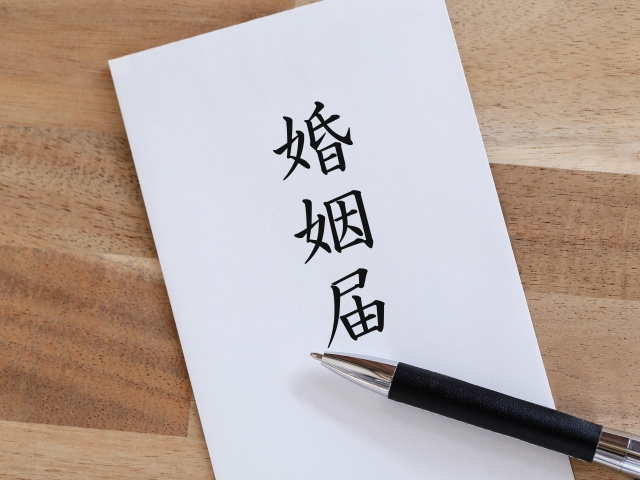 婚姻届